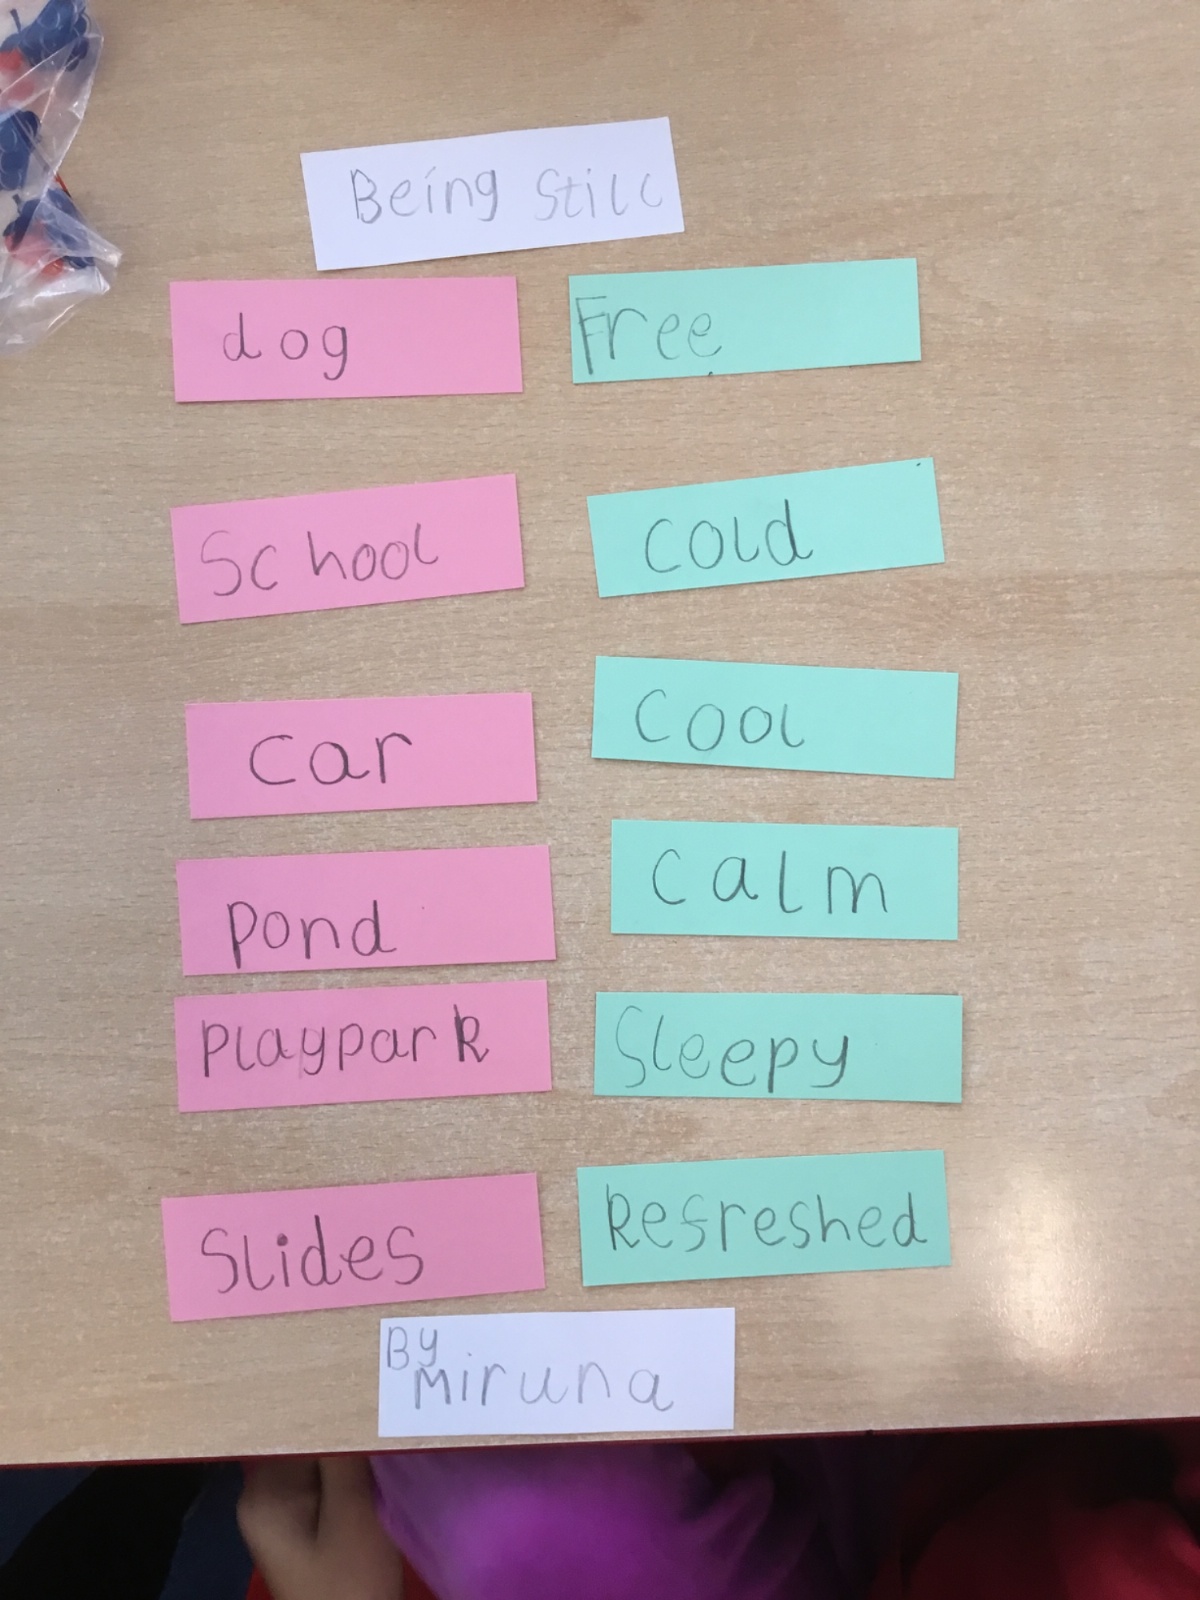 Being Still
dog Free
School Cold
Car Cool
Pond Calm
Playpark Sleepy
Slides Refreshed
By
Miruna